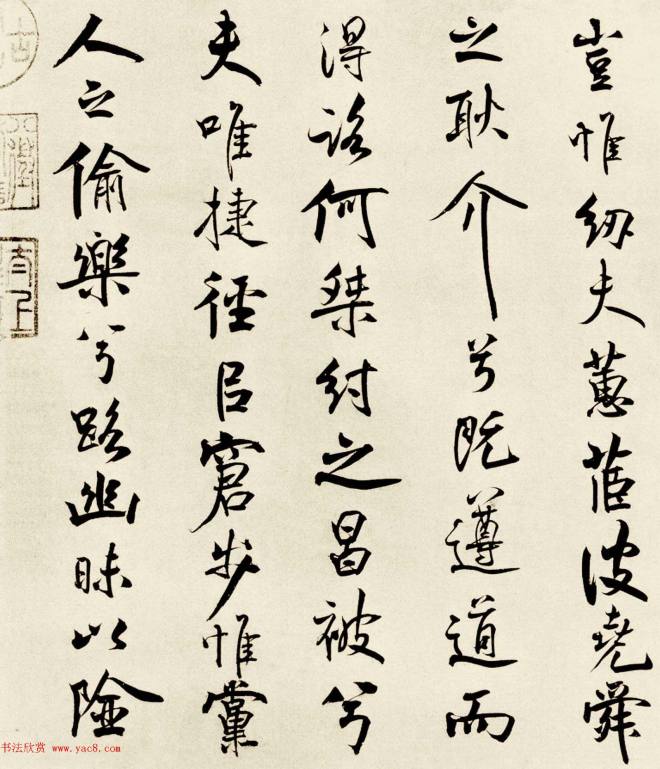 豈惟紉夫蕙茝彼堯舜
之耿介兮既遵道而
得路何桀紂之昌被兮
夫唯捷徑㠯窘步惟黨
人之偷樂兮路幽昧以險
书法欣赏 www.yac8.com